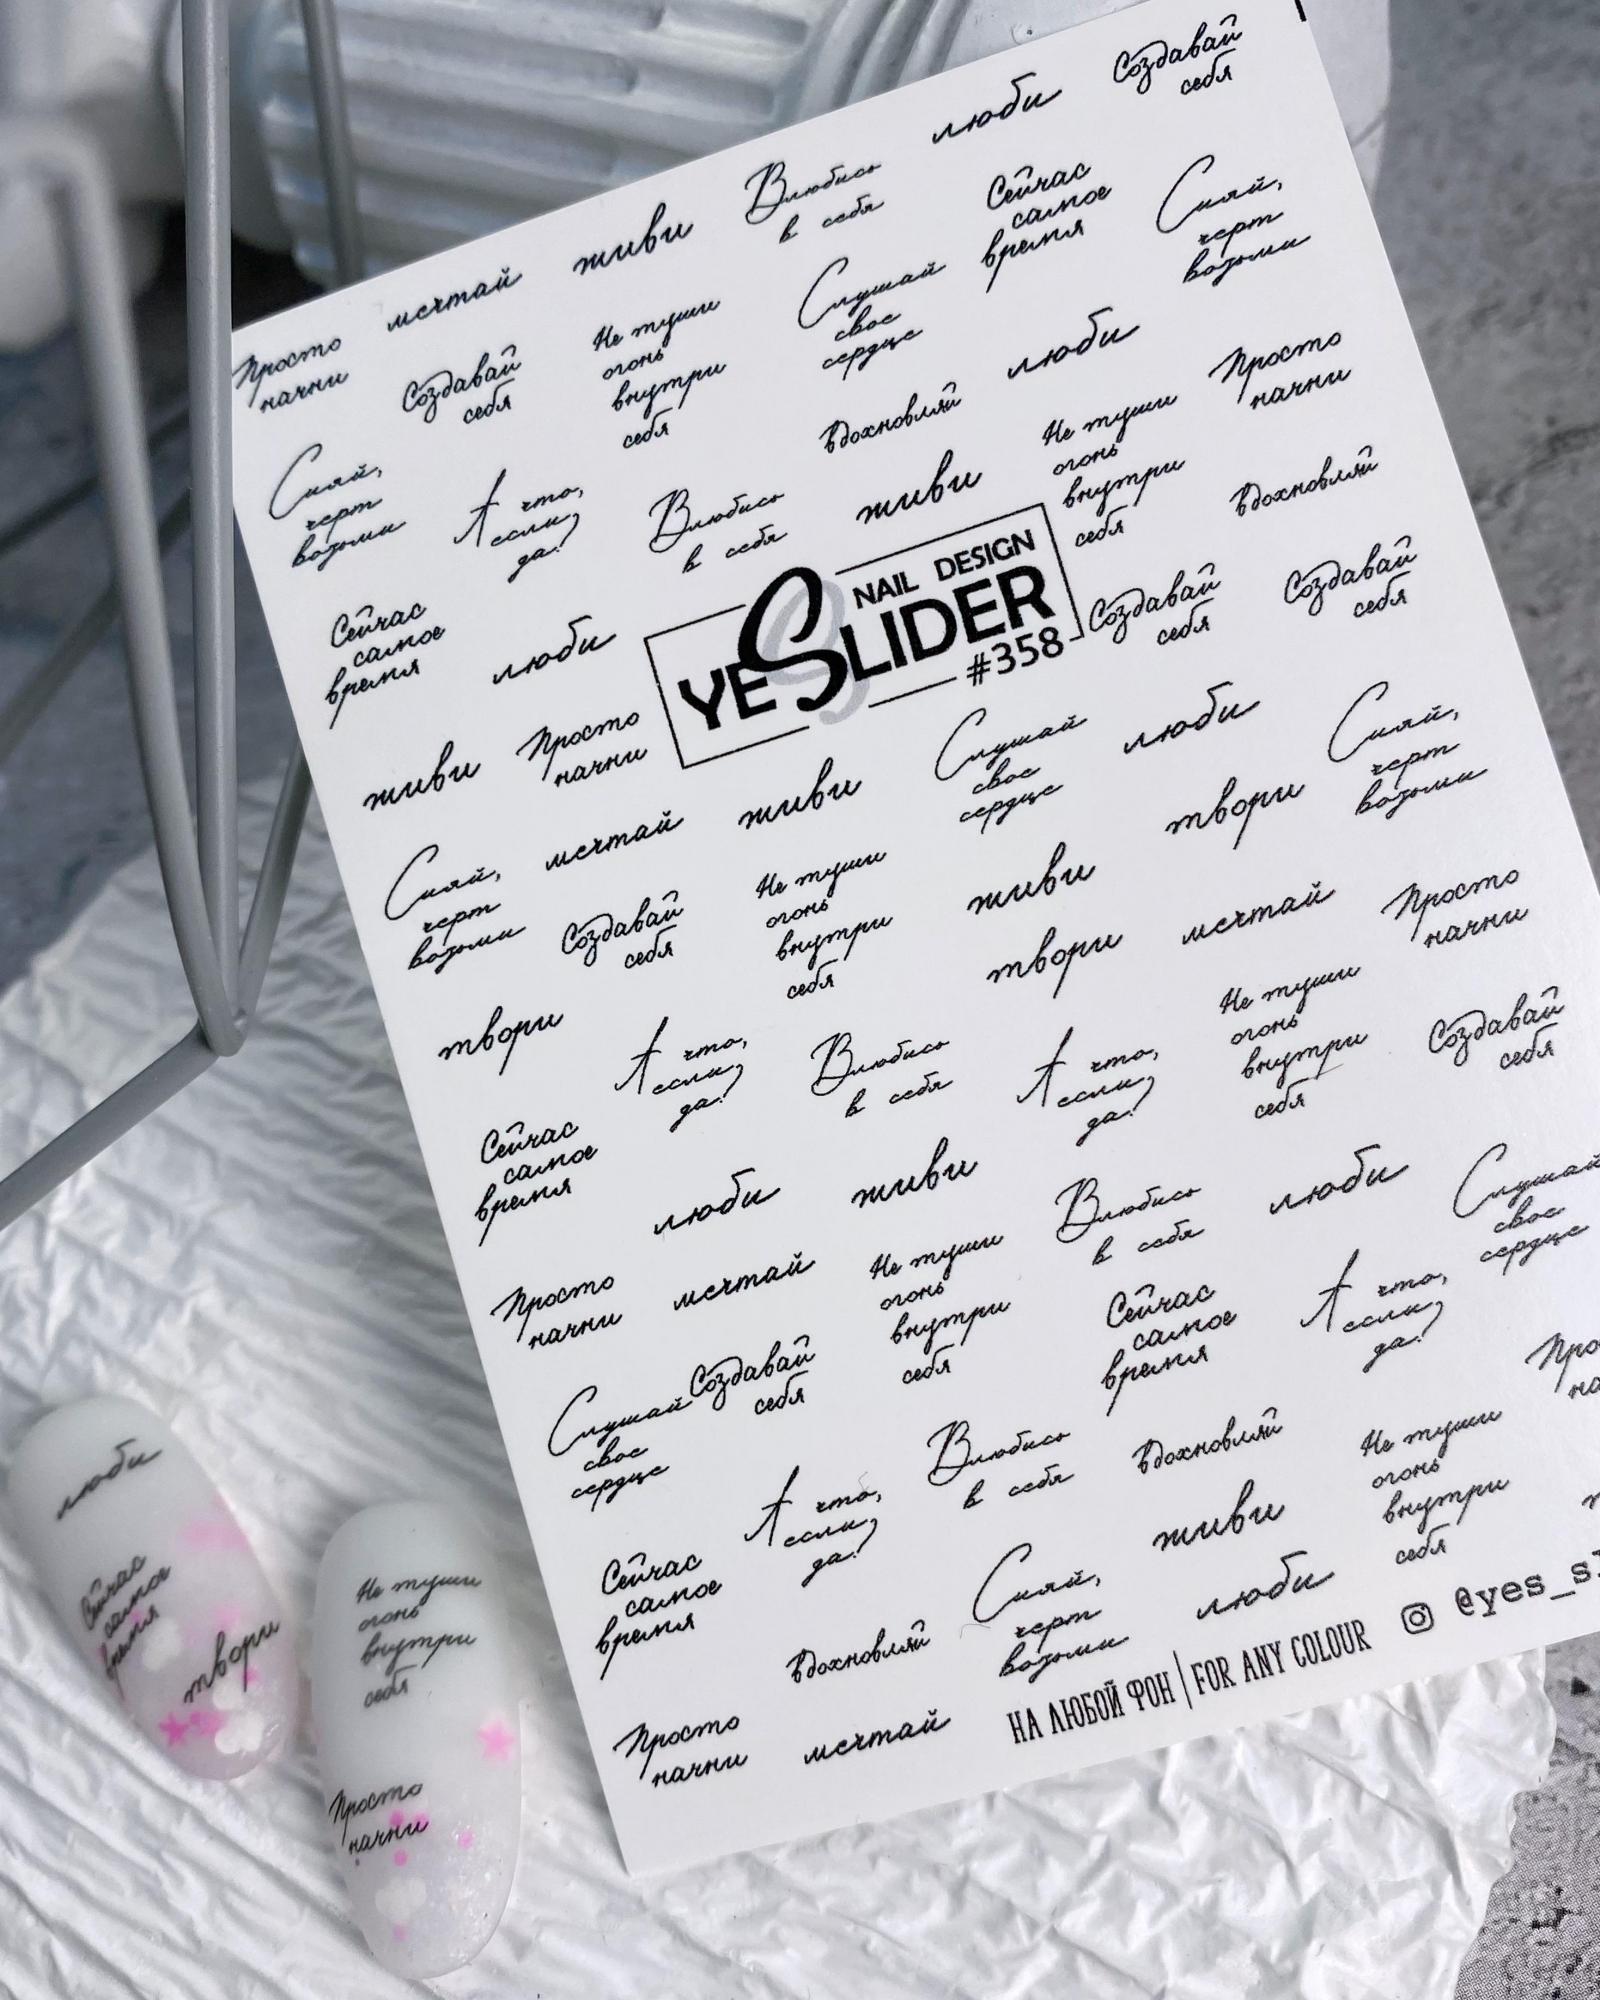 Создавай
себя
люби
Влюбись
в себя
живи
мечтай
Просто
начни
Сияй,
черт
возьми
Сейчас
самое
время
Слушай
свое
сердце
Не туши
огонь
внутри
себя
Создавай
себя
Просто
начни
люби
вдохновляй
А что,
если
да?
Сияй,
черт
возьми
вдохновляй
Не туши
огонь
внутри
себя
живи
Влюбись
в себя
NAIL DESIGN
YESLIDER
#358
Создавай
себя
Создавай
себя
люби
Сейчас
самое
время
живи
Просто
начни
Слушай
свое
сердце
люби
Сияй,
черт
возьми
твори
живи
мечтай
Сияй,
черт
возьми
Создавай
себя
Не туши
огонь
внутри
себя
живи
твори
мечтай
Просто
начни
твори
А что,
если
да?
Влюбись
в себя
А что,
если
да?
Не туши
огонь
внутри
себя
Создавай
себя
Сейчас
самое
время
люби
живи
Влюбись
в себя
люби
Слушай
свое
сердце
Просто
начни
мечтай
Не туши
огонь
внутри
себя
Сейчас
самое
время
А что,
если
да?
Слушай
свое
сердце
Создавай
себя
Влюбись
в себя
вдохновляй
Не туши
огонь
внутри
себя
Сейчас
самое
время
А что,
если
да?
живи
Сияй,
черт
возьми
люби
вдохновляй
Просто
начни
мечтай
НА ЛЮБОЙ ФОН | FOR ANY COLOUR
люби
Сейчас
самое
время
твори
Не туши
огонь
внутри
себя
Просто
начни